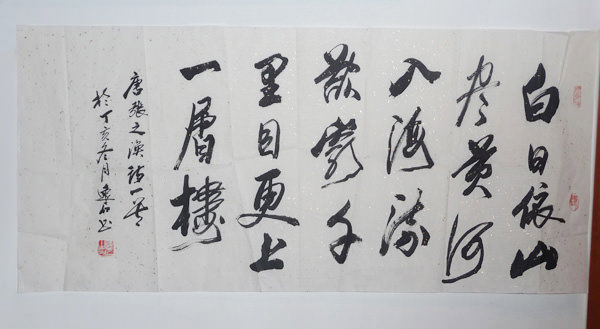 白日依山
尽黄河
入海流
欲窮千
里目更上
一層樓
唐張之渙詩一首
於丁亥冬月